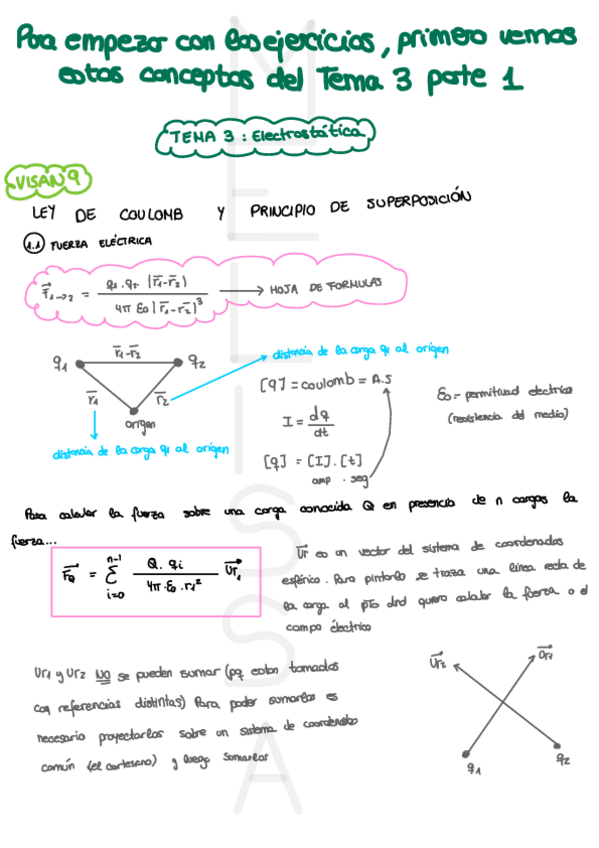 Para empezar con los ejercicios, primero vemos
estos conceptos del Tema 3 parte 1
TEMA 3: Electrostática
VISAN 9
LEY DE COULOMB Y PRINCIPIO DE SUPERPOSICIÓN
1.1 FUERZA ELÉCTRICA
F⃗1→2 = q1 · q2 (r̅1 - r̅2) / 4π ε0 |r̅1 - r̅2|³ → HOJA DE FORMULAS
q1 r̅1-r̅2 q2
r̅1 r̅2
origen
distancia de la carga q1 al origen
distancia de la carga q1 al origen
[q] = coulomb = A.S
I = dq / dt
[q] = [I] . [t]
amp . seg
ε0 = permitividad electrica
(resistencia del medio)
Para calcular la fuerza sobre una carga conocida Q en presencia de n cargas la
fuerza...
F⃗Q = n-1 Σ i=0 Q. qi / 4π . ε0 . r1² U⃗r1
U⃗r es un vector del sistema de coordenadas
esférico. Para pintarlo se traza una línea recta de
la carga al pto dnd quiero calcular la fuerza o el
campo eléctrico
Ur1 y Ur2 NO se pueden sumar (pq estan tomados
con referencias distintas) Para poder sumarlos es
necesario proyectarlos sobre un sistema de coordenadas
común (el cartesiano) y luego sumarlos
U⃗r2 U⃗r1
q1 q2
MELISSA